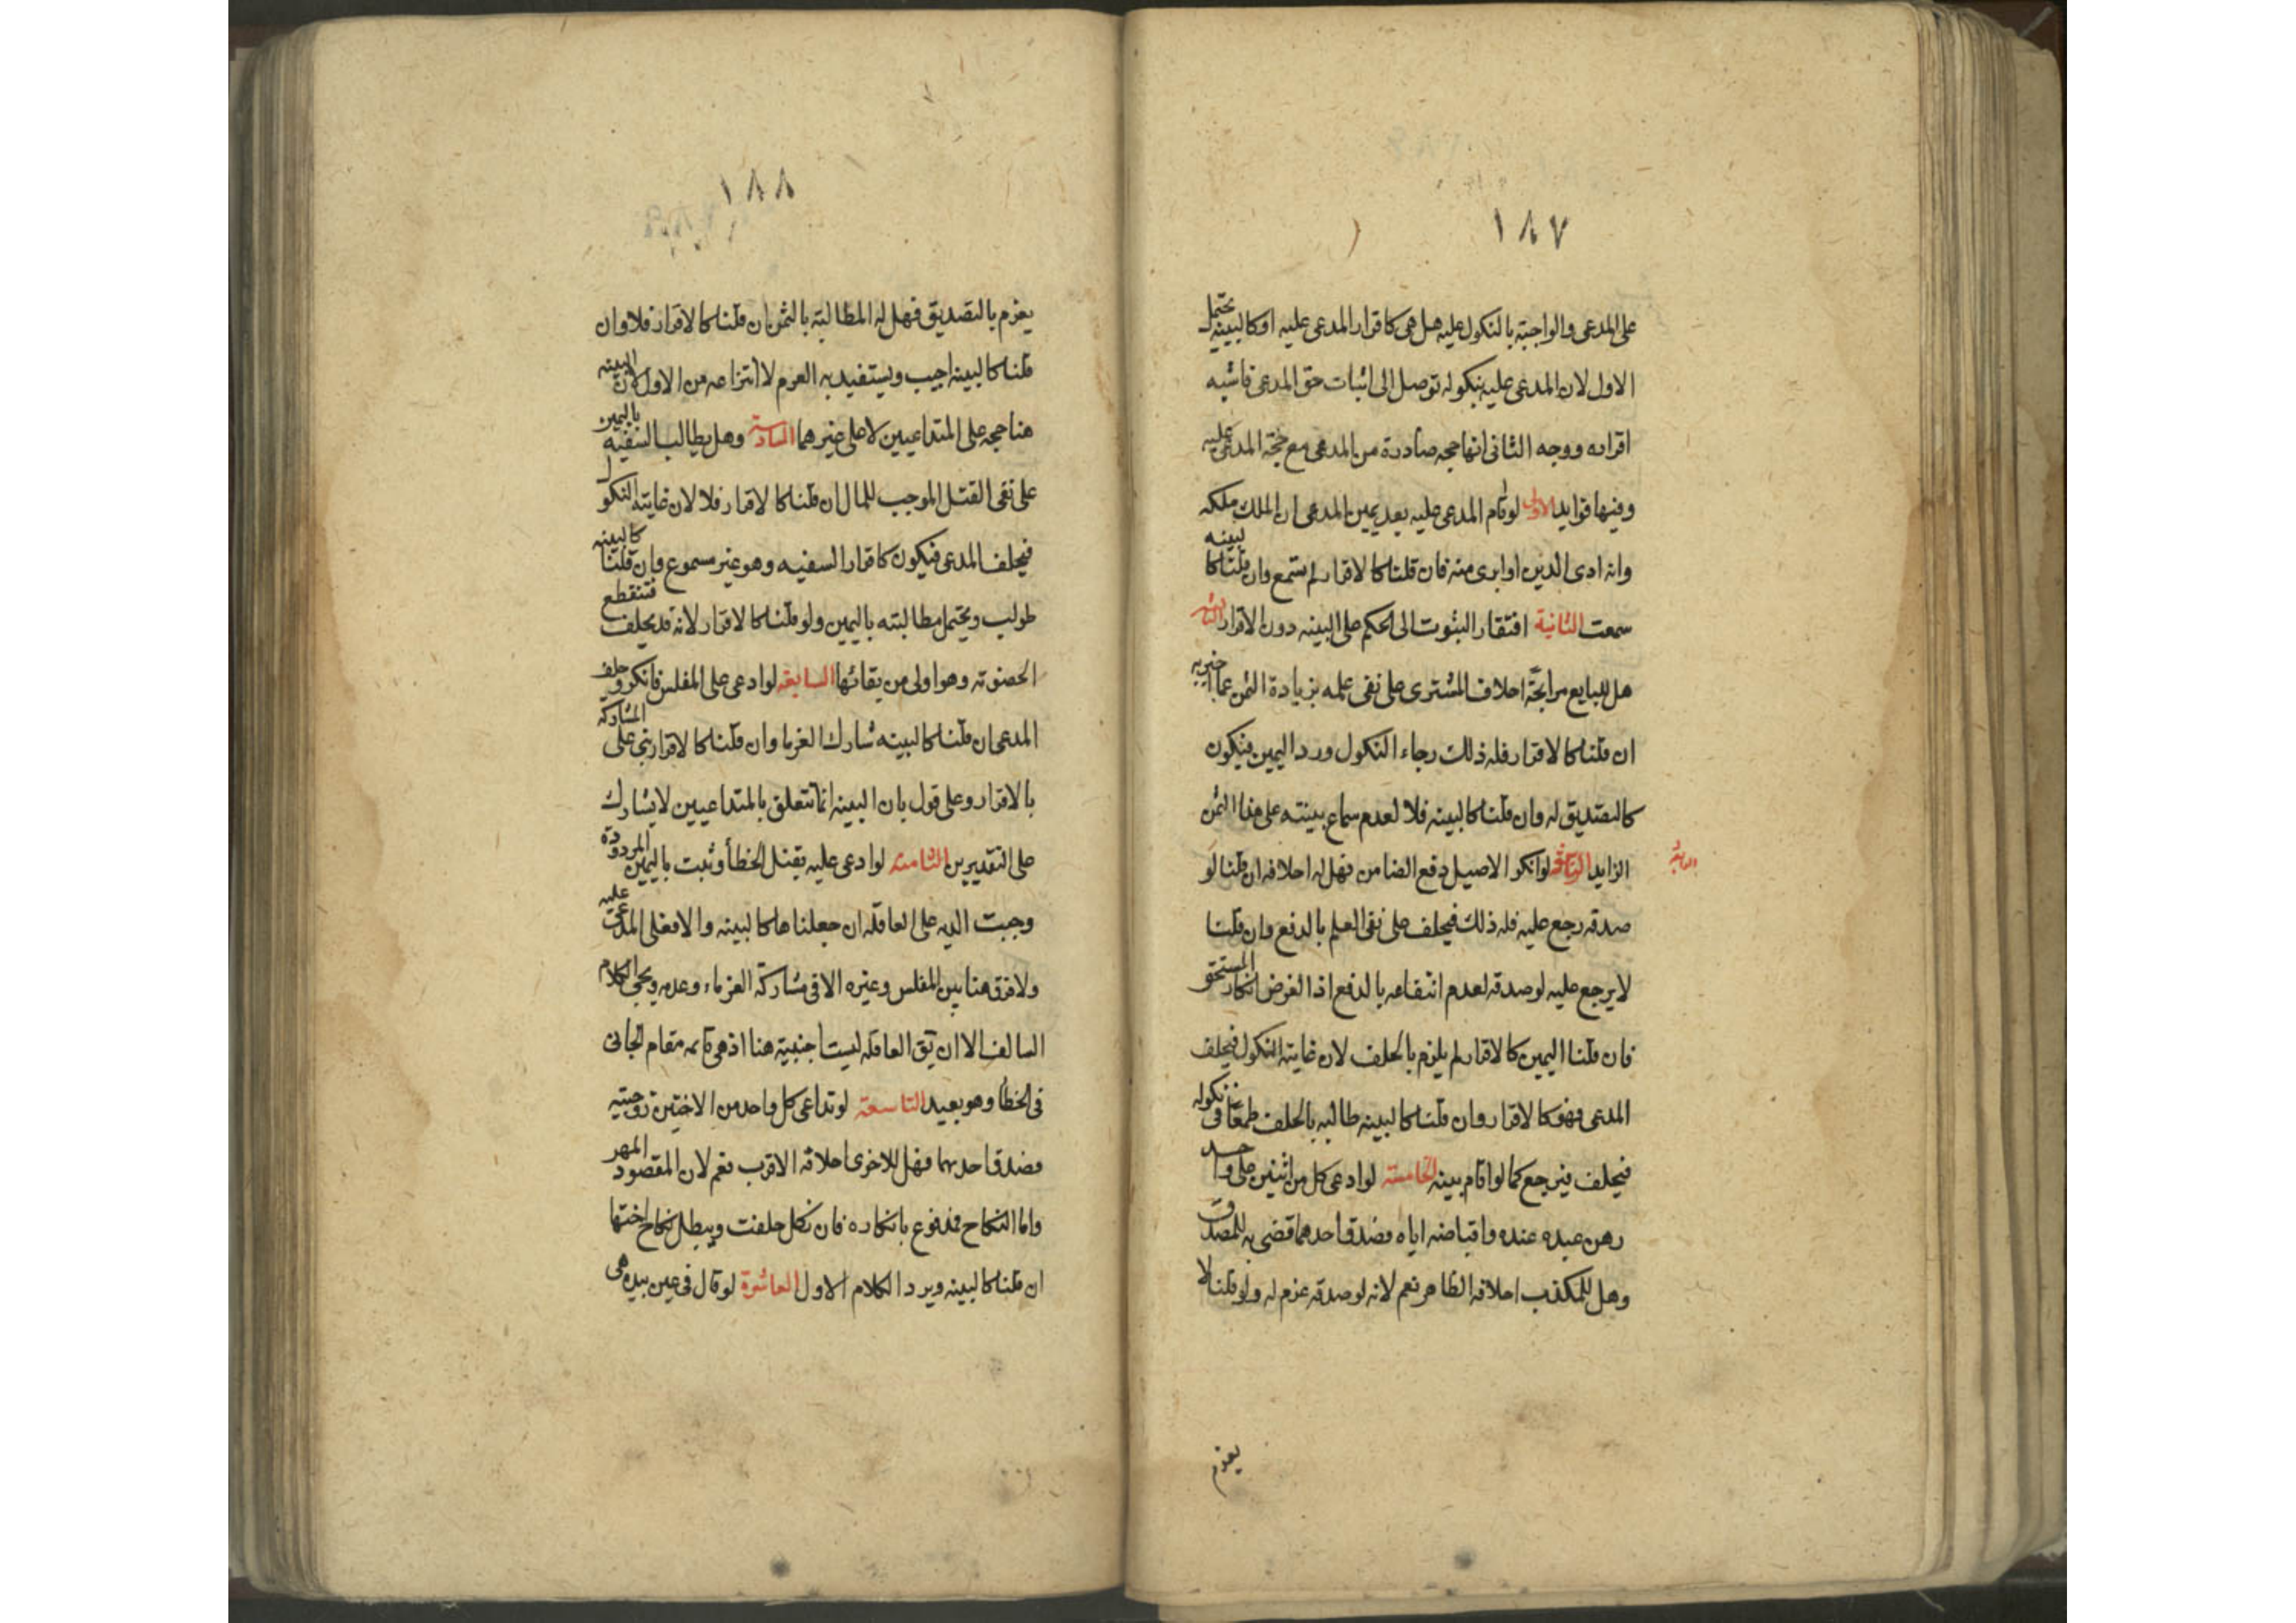 ١٨٧
على المدعى والواجبة بالنكول عليه هل هى كاقرار المدعى عليه اوكالبينه يحتمل
الاول لان المدعى عليه بنكوله توصل الى اثبات حق المدعى فاشبه
اقراره ووجه الثانى انها حجه صادرة من المدعى مع حجة المدعى عليه
وفيها فوايد الاولى لو قام المدعى عليه بعد يمين المدعى ان الملك ملكه
وانه ادى الدين او ابرى منه فان قلنا كالاقرار لم يسمع وان قلنا كالبينه
سمعت الثانية افتقار الثبوت الى الحكم على البينه دون الاقرار الثالثه
هل للبايع مرابحة احلاف المشترى على نفى علمه بزيادة الثمن عما اخبر به
ان قلنا كالاقرار فله ذلك رجاء النكول ورد اليمين فيكون
كالتصديق له وان قلنا كالبينه فلا لعدم سماع بينته على هذا الثمن
الزايد لو انكر الاصيل دفع الضامن فهل له احلافه ان قلنا لو
الرابعه
صدقه رجع عليه فله ذلك فيحلف على نفى العلم بالدفع وان قلنا
لا يرجع عليه لو صدقه لعدم انتفاعه بالدفع اذ الغرض انكار المستحق
فان قلنا اليمين كالاقرار لم يلزم بالحلف لان غايته النكول فيحلف
المدعى فهو كالاقرار وان قلنا كالبينه طالبه بالحلف طمعا فى نكوله
فيحلف فيرجع كما لو اقام بينه الخامسة لو ادعى كل من اثنين على واحد
رهن عبده عنده واقباضه اياه فصدق احدهما قضى به للمصدق
وهل للمكذب احلافه الظاهر نعم لانه لو صدقه غرم له ولو قلنا لا
يغرم
١٨٨
يغرم بالتصديق فهل له المطالبة بالثمن ان قلنا كالاقرار فلا وان
قلنا كالبينه اجيب ويستفيد به الغرم لا انتزاعه من الاول لان البينه
هنا حجه على المتداعيين لا على غيرهما السادسة وهل يطالب السفيه باليمين
على نفى القتل الموجب للمال ان قلنا كالاقرار فلا لان غايته النكول
فيحلف المدعى فيكون كاقرار السفيه وهو غير مسموع وان قلنا كالبينه
طولب ويحتمل مطالبته باليمين ولو قلنا كالاقرار لانه قد يحلف فتنقطع
الخصومة وهو اولى من بقائها السابعة لو ادعى على المفلس فانكر وحلف
المدعى ان قلنا كالبينه شارك الغرما وان قلنا كالاقرار بنى على المشاركة
بالاقرار وعلى قول بان البينه انما تتعلق بالمتداعيين لا يشارك
على التقديرين الثامنة لو ادعى عليه بقتل الخطأ وثبت باليمين المردودة
وجبت الديه على العاقلة ان جعلناها كالبينه والا فعلى المدعى عليه
ولا فرق هنا بين المفلس وغيره الا فى مشاركة الغرماء وعدمه ويجى الكلام
السالف الا ان يق العاقلة ليست اجنبية هنا اذ هى قايمه مقام الجانى
فى الخطأ وهو بعيد التاسعة لو تداعى كل واحد من الاختين زوجيته
فصدق احدهما فهل للاخرى احلافه الاقرب نعم لان المقصود المهر
واما النكاح فمدفوع بانكاره فان نكل حلفت ويبطل نكاح اختها
ان قلنا كالبينه ويرد الكلام الاول العاشرة لو قال فى عين بيده هى